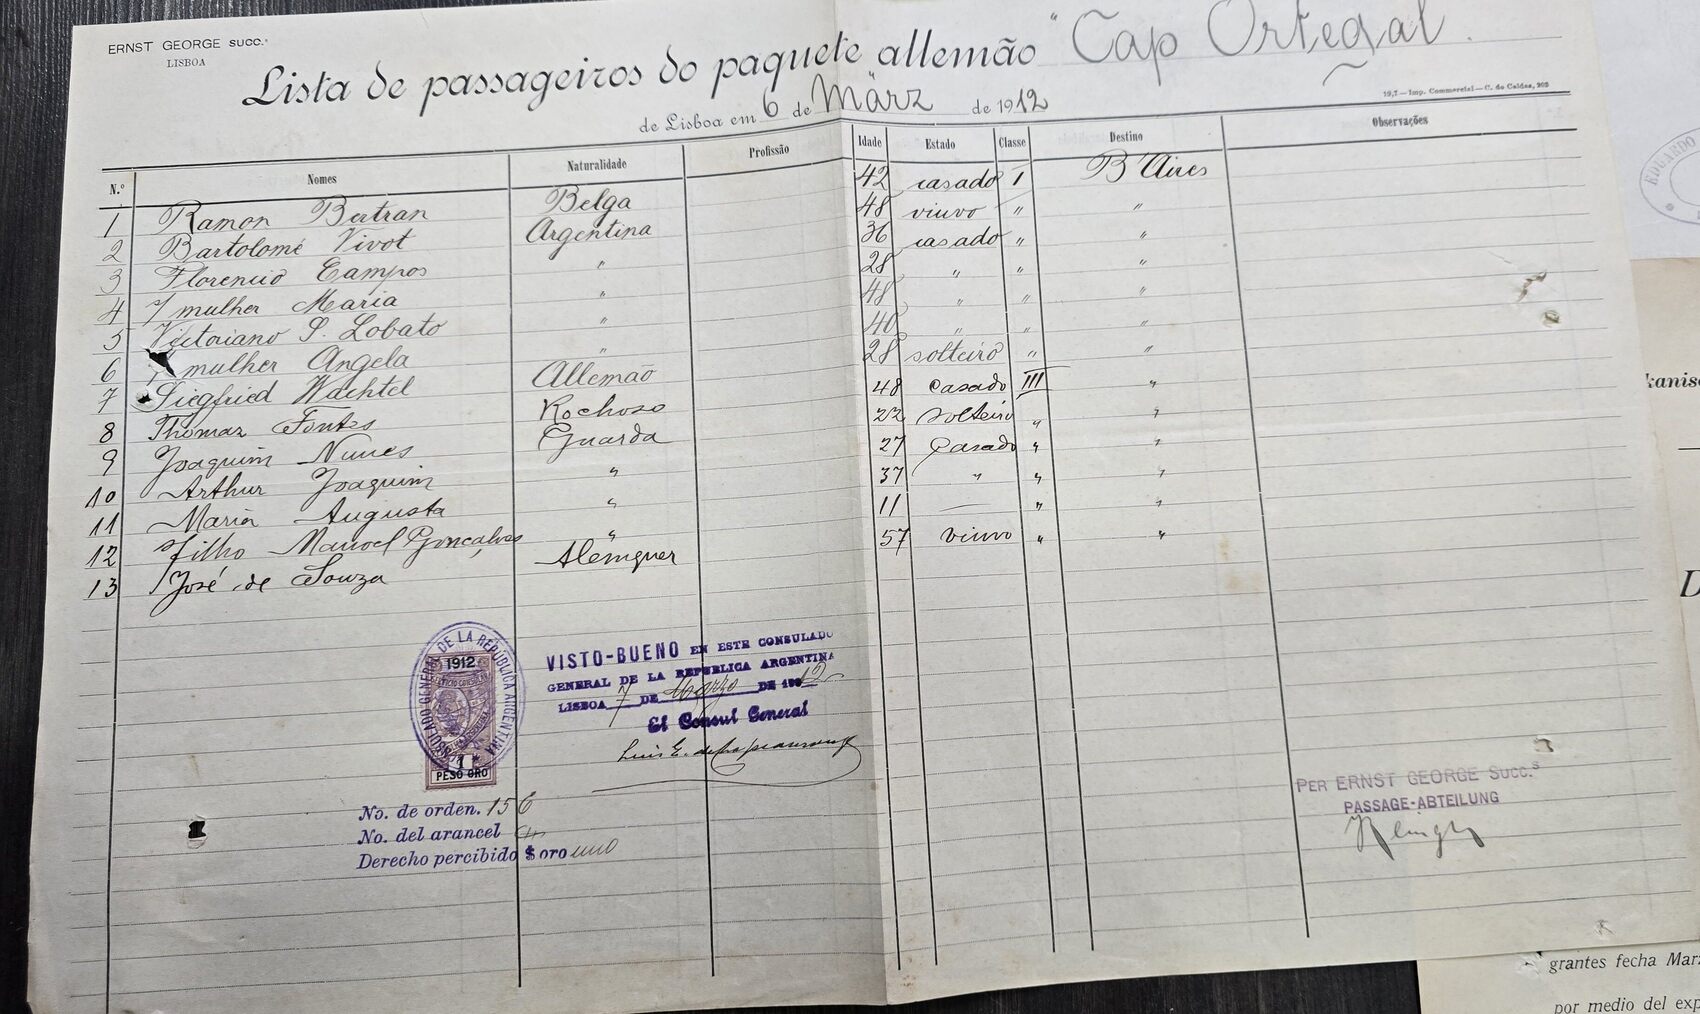 ERNST GEORGE SUCC.s
LISBOA
Lista de passageiros do paquete allemão "Cap Ortegal"
de Lisboa em 6 de März de 1912
19,7 — Imp. Commercial — C. do Caldas, 203
N.º Nomes Naturalidade Profissão Idade Estado Classe Destino Observações
1 Ramon Bertran Belga 42 casado I B Aires
2 Bartolomé Vivot Argentina 48 viuvo " "
3 Florencio Campos " 36 casado " "
4 s/ mulher Maria " 28 " " "
5 Victoriano S. Lobato " 48 " " "
6 mulher Angela " 40 " " "
7 Siegfried Wachtel Allemao 28 solteiro " "
8 Thomaz Fontes Rochoso 48 Casado III "
9 Joaquim Nunes Guarda 22 solteiro " "
10 Arthur Joaquim " 27 Casado " "
11 Maria Augusta " 37 " " "
12 s/ filho Manoel Gonçalves " 11 — " "
13 José de Souza Alemquer 57 viuvo " "
CONSULADO GENERAL DE LA REPUBLICA ARGENTINA
1912
1
PESO ORO
VISTO-BUENO EN ESTE CONSULADO
GENERAL DE LA REPUBLICA ARGENTINA
LISBOA 7 DE Marzo DE 1912
El Consul General
Luis E.
No. de orden. 156
No. del arancel
Derecho percibido $ oro uno
PER ERNST GEORGE SUCC.s
PASSAGE-ABTEILUNG
EDUARDO
kanisc
D
grantes fecha Mar
por medio del exp